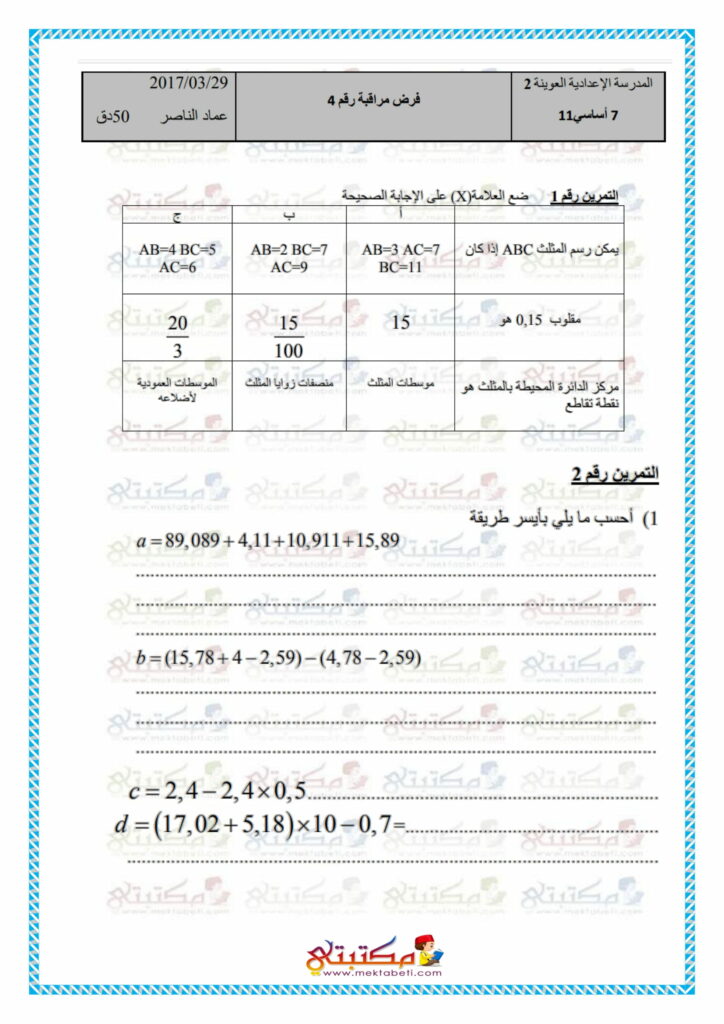 المدرسة الإعدادية العوينة 2
7 أساسي11
فرض مراقبة رقم 4
2017/03/29
عماد الناصر 50دق
التمرين رقم 1 ضع العلامة(X) على الإجابة الصحيحة
أ ب ج
يمكن رسم المثلث ABC إذا كان
AB=3 AC=7
BC=11
AB=2 BC=7
AC=9
AB=4 BC=5
AC=6
مقلوب 0,15 هو
15
15/100
20/3
مركز الدائرة المحيطة بالمثلث هو
نقطة تقاطع
موسطات المثلث
منصفات زوايا المثلث
الموسطات العمودية
لأضلاعه
التمرين رقم 2
1) أحسب ما يلي بأيسر طريقة
a = 89,089 + 4,11 + 10,911 + 15,89
b = (15,78 + 4 − 2,59) − (4,78 − 2,59)
c = 2,4 − 2,4 × 0,5
d = (17,02 + 5,18) × 10 − 0,7=
مكتبتي
www.mektabeti.com